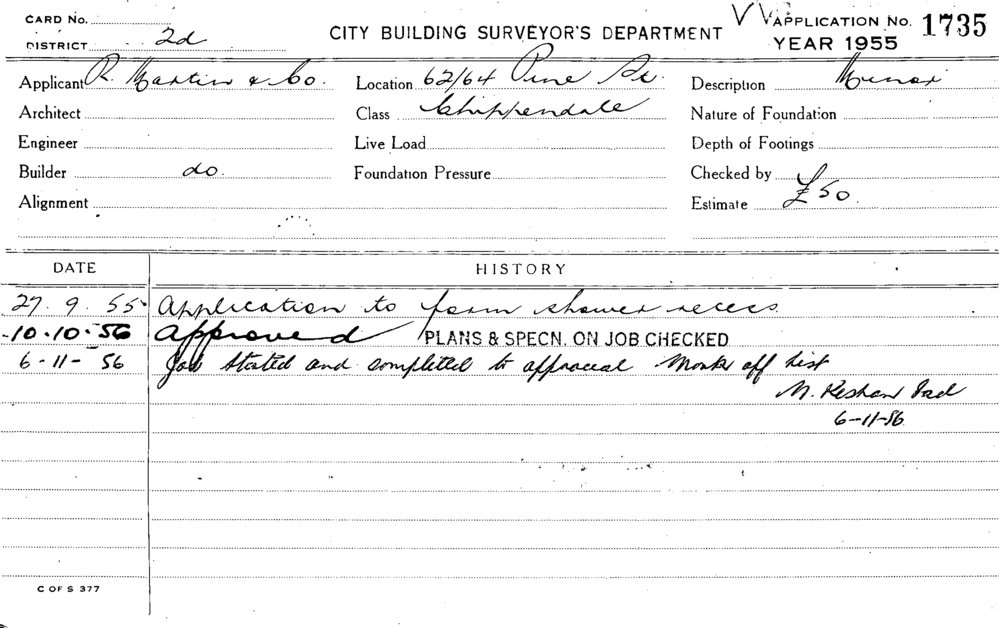 CARD No. CITY BUILDING SURVEYOR'S DEPARTMENT VV APPLICATION No. 1735
DISTRICT 2d YEAR 1955
Applicant R. Martin & Co. Location 62/64 Pine St. Description Minor
Architect Class Chippendale Nature of Foundation
Engineer Live Load Depth of Footings
Builder do. Foundation Pressure Checked by
Alignment Estimate £50
DATE HISTORY
27. 9. 55 Application to form shower recess
10.10.56 Approved PLANS & SPECN. ON JOB CHECKED
6-11-56 Job started and completed to approval Mark off list
M.
6-11-56
C OF S 377